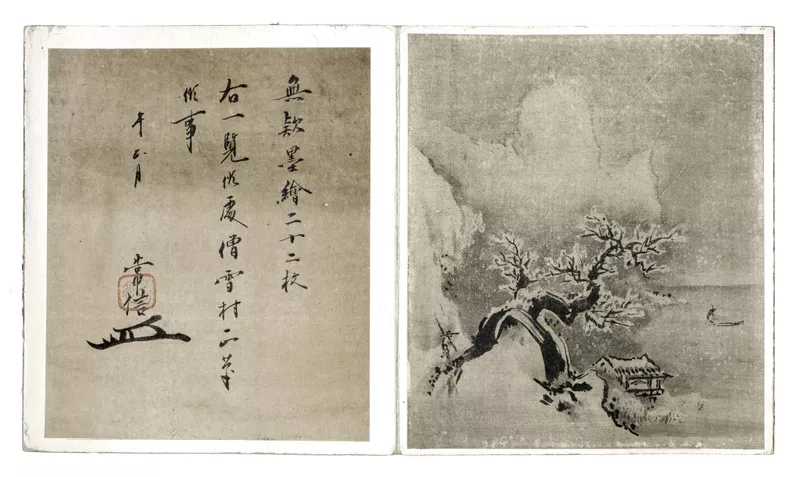 無款墨繪二十二枚
右一覧候處僧雪村正筆
候事
午正月
常信